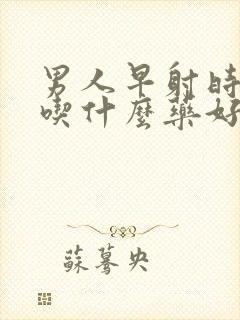 男人早射時
喫什麼藥好
蘇驀央